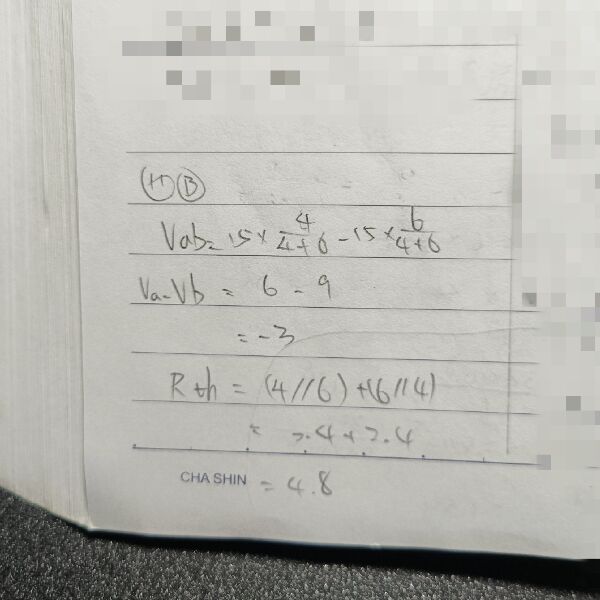 Ⓑ
Vab = 15 × 4/4+6 - 15 × 6/4+6
Va-Vb = 6 - 9
= -3
Rth = (4//6) + (6//4)
= 2.4 + 2.4
CHA SHIN = 4.8